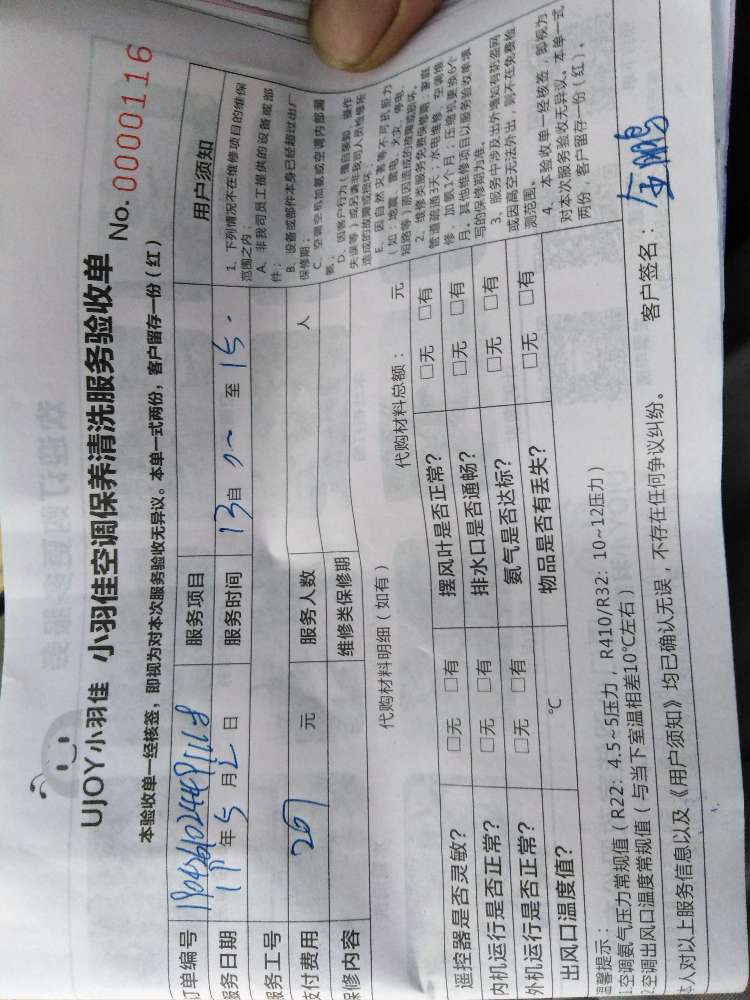 UJOY小羽佳 小羽佳空调保养清洗服务验收单 No. 0000116
本验收单一经核签，即视为对本次服务验收无异议。本单一式两份，客户留存一份（红）
订单编号
服务项目
用户须知
服务日期 年 5 月 2 日
服务时间 13 自 至 15
服务工号
支付费用 元
服务人数 人
保修内容
维修类保修期
1、下列情况不在维修项目的维保范围之内：
A、非我司员工提供的设备或部件；
B、设备或部件本身已经超过出厂保修期；
C、空调空机加氨或空调内部漏氨；
D、因客户行为（擅自装卸、操作失误等）或另请非我司人员检修所造成的故障或损坏；
E、因自然灾害等不可抗拒力（如：地震、雷电、火灾、停电、短路等）原因造成的故障或损坏。
2、维修类服务免费保修期，家庭管道疏通3天；水电维修、空调维修、加氨1个月；压缩机更换6个月。其他维修项目以服务验收单填写的保修期为准。
3、服务中涉及出外墙如有防盗网或因高空无法外出，则不在免费检测范围。
4、本验收单一经核签，即视为对本次服务验收无异议、本单一式两份，客户留存一份（红）。
代购材料明细（如有）
代购材料总额： 元
遥控器是否灵敏？ □无 □有 摆风叶是否正常？ □无 □有
内机运行是否正常？ □无 □有 排水口是否通畅？ □无 □有
外机运行是否正常？ □无 □有 氨气是否达标？ □无 □有
出风口温度值？ ℃ 物品是否有丢失？ □无 □有
温馨提示：
1空调氨气压力常规值（R22：4.5~5压力，R410/R32：10~12压力）
2空调出风口温度常规值（与当下室温相差10℃左右）
本人对以上服务信息以及《用户须知》均已确认无误，不存在任何争议纠纷。 客户签名：金鹏